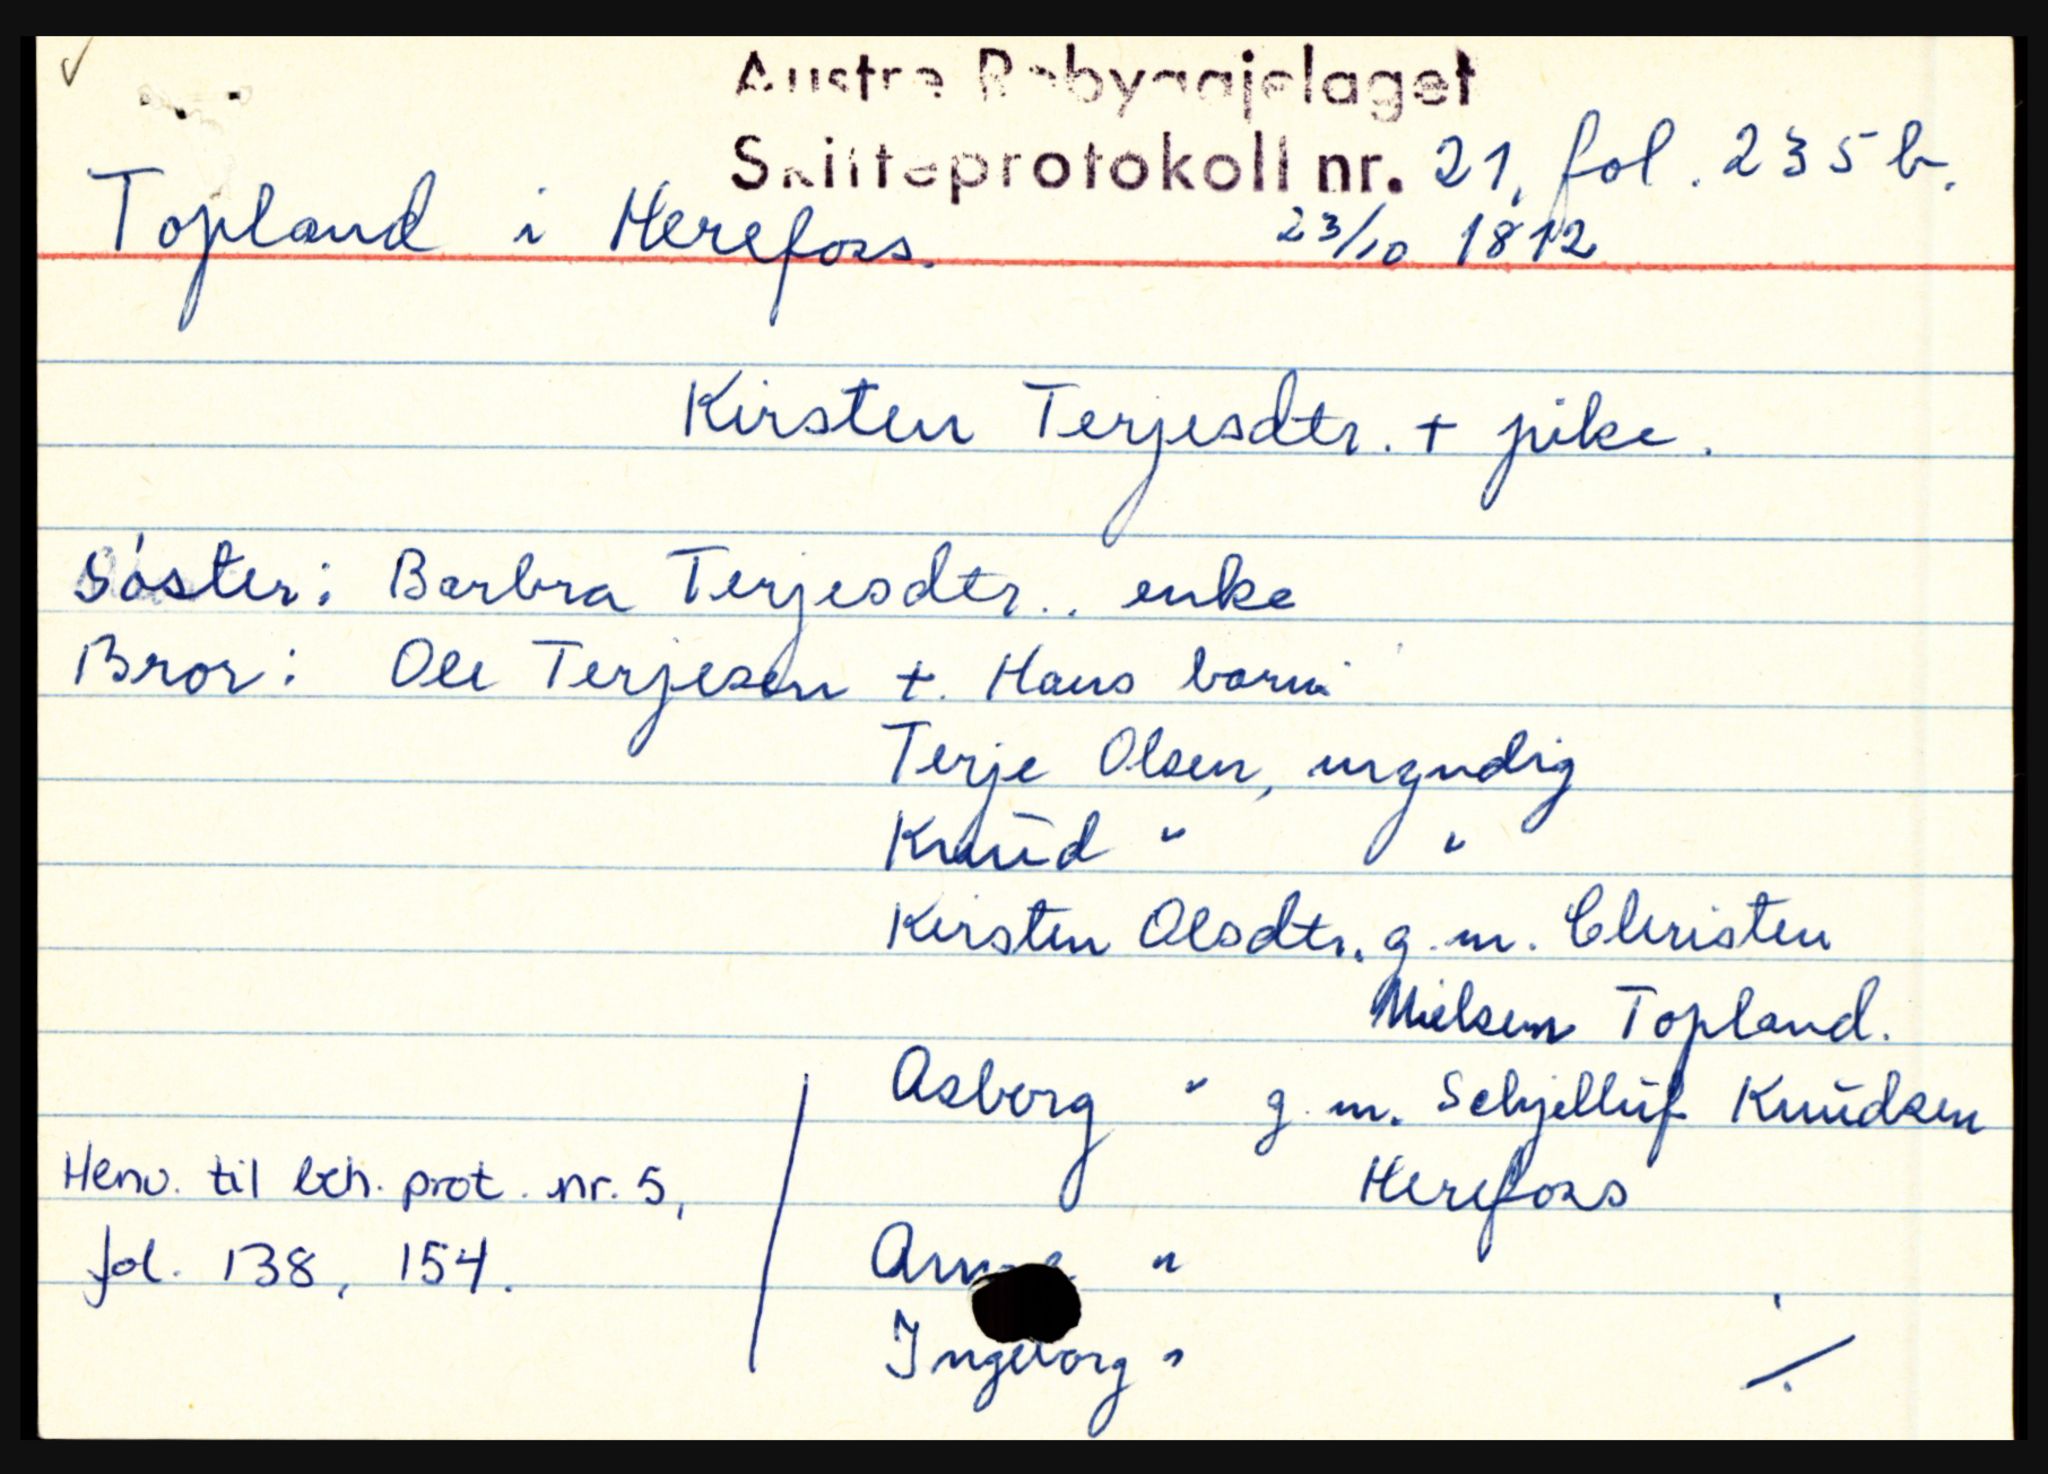 Austre Råbyggjelaget
Skifteprotokoll nr. 21, fol. 235 b.
Topland i Herefoss. 23/10 1812
Kirsten Terjesdtr. + pike.
Söster: Barbra Terjesdtr.. enke
Bror: Ole Terjesen +. Hans barn:
Terje Olsen, myndig
Knud " "
Kirsten Olsdtr. g.m. Christen
Nielsen Topland.
Asborg " g.m. Schjelluf Knudsen
Herefoss
Henv. til beh. prot. nr. 5,
fol. 138, 154.
Anne "
Ingeborg "
./.